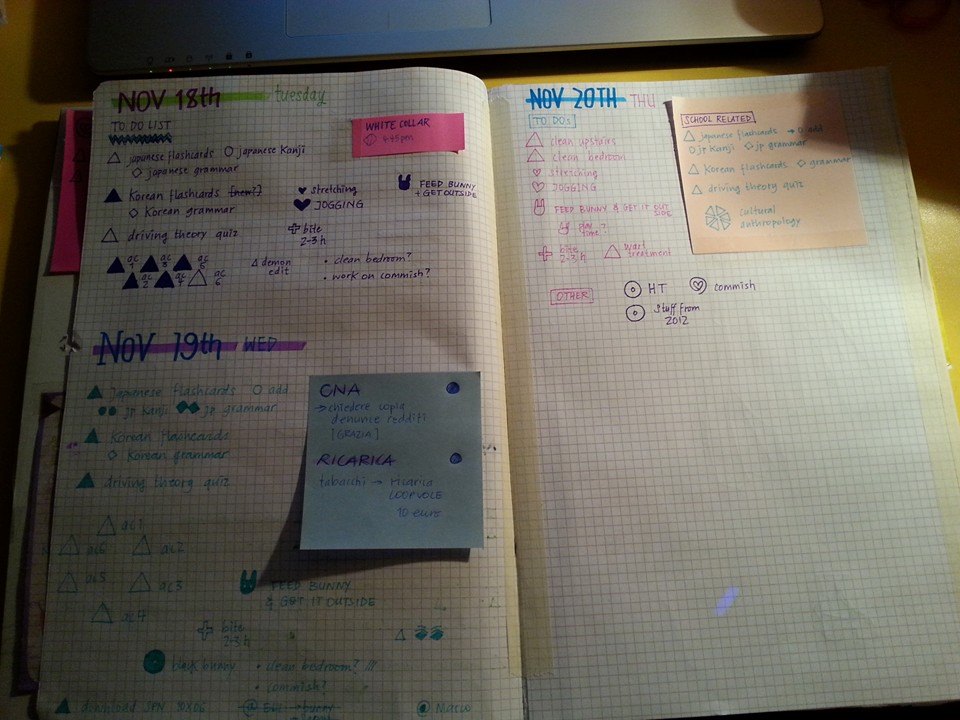 NOV 18th tuesday
TO DO LIST
japanese flashcards japanese Kanji
japanese grammar
WHITE COLLAR
4:45pm
Korean flashcards [new?]
Korean grammar
stretching
JOGGING
FEED BUNNY
+ GET OUTSIDE
driving theory quiz
bite
2-3h
ac 1 ac 3 ac 5
ac 2 ac 4 ac 6
demon
edit
• clean bedroom?
• work on commish?
NOV 19th WED
Japanese flashcards add
jp Kanji jp grammar
Korean flashcards
Korean grammar
driving theory quiz
CNA
→ chiedere copia
denunce redditi
[GRAZIA]
RICARICA
tabacchi → ricarica
10 euro
ac1
ac6 ac2
ac5 ac3
ac4
FEED BUNNY
& GET IT OUTSIDE
bite
2-3h
black bunny
• clean bedroom? !!!
• commish?
download JPN
NOV 20TH THU
TO DOs
clean upstairs
clean bedroom
stretching
JOGGING
FEED BUNNY & GET IT OUT
SIDE
play
time?
bite
2-3h
wart
treatment
SCHOOL RELATED
japanese flashcards → add
jp Kanji jp grammar
Korean flashcards grammar
driving theory quiz
cultural
anthropology
OTHER
HT commish
stuff from
2012